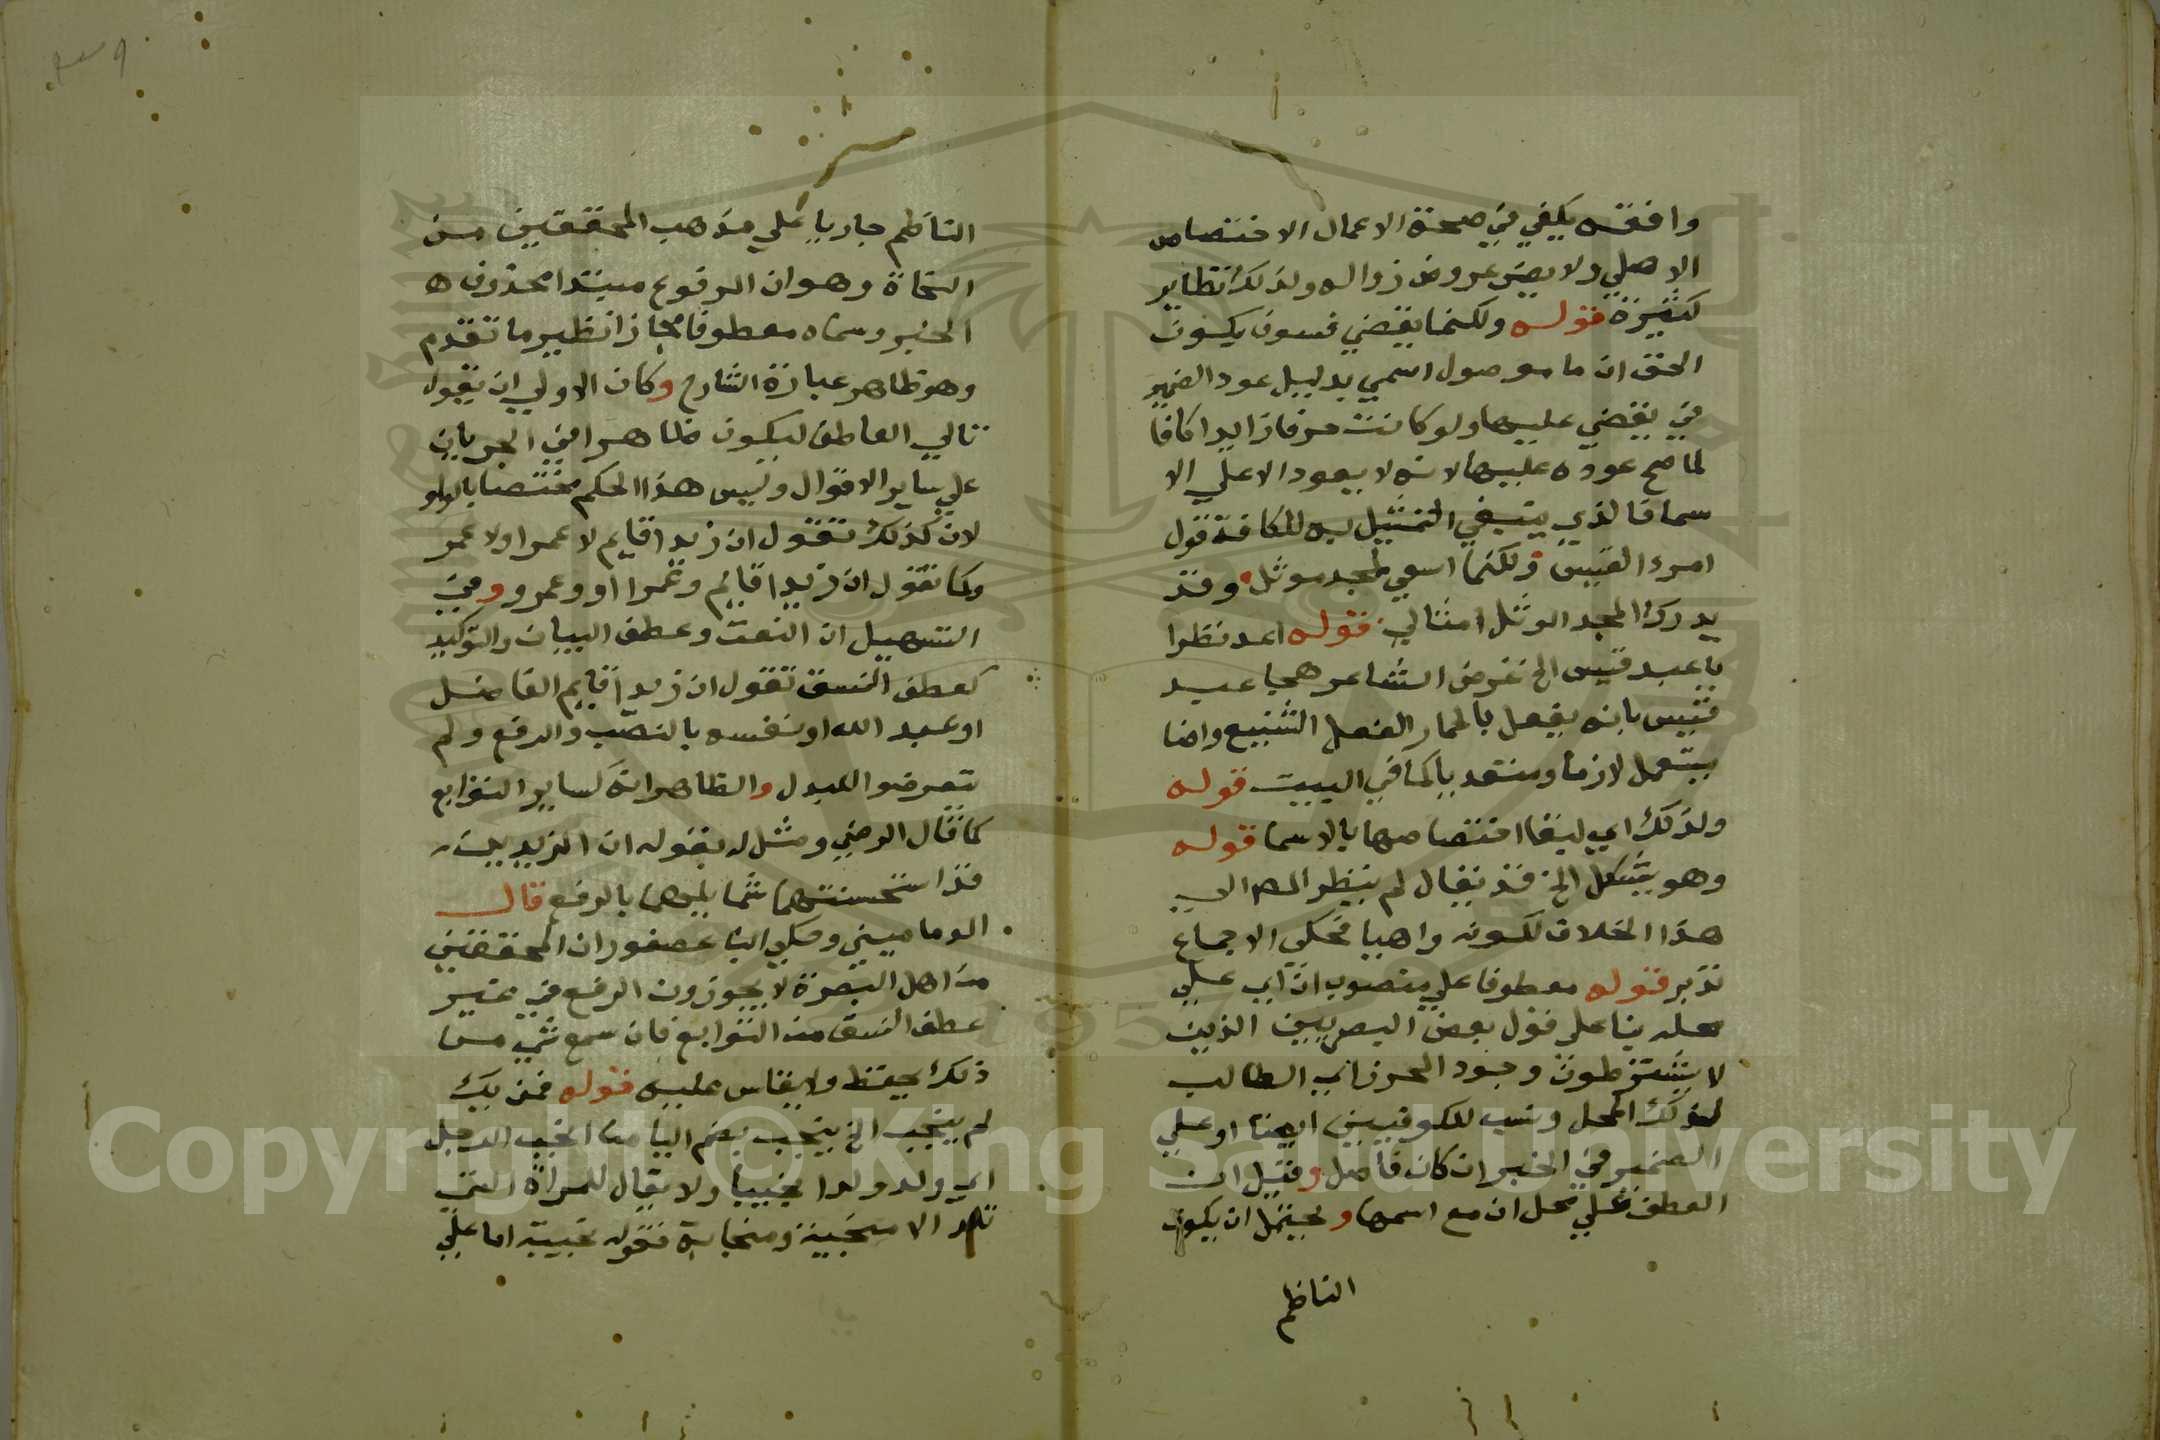 وافقه يكفي في صحة الاعمال الاختصاص
الاصلي ولا يضر عروض زواله ولذلك نظاير
كثيرة قوله ولكنما يقضي فسوف يكون
الحق ان ما موصول اسمي بدليل عود الضمير
في يقضي عليها ولو كانت حرفا زايدا كافا
لما صح عوده عليها لانه لا يعود الا علي الا
سما فالذي ينبغي التمثيل به للكافة قول
امرء القيس ولكنما اسعي لمجد موثل وقد
يدرك المجد الموثل امثالي قوله اعد نظرا
يا عبد قيس الخ غرض الشاعر هجا عبد
قيس بانه يفعل بالحمار الفعل الشنيع واضا
يستعمل لازما ومتعديا كما في البيت قوله
ولذلك اي لبقا اختصاصها بالاسما قوله
وهو يشكل الخ قد يقال لم ينظر المص الي
هذا الخلاف لكونه واهيا فحكي الاجماع
تدبر قوله معطوفا علي منصوب ان اي علي
محله بنا علي قول بعض البصريين الذين
لا يشترطون وجود المحرز اي الطالب
لذلك المحل ونسب للكوفيين ايضا او علي
الضمير في الخبر ان كان فاصل وقيل ان
العطف علي محل ان مع اسمها ويحتمل ان يكون
الناظم
الناظم جاريا علي مذهب المحققين من
النحاة وهو ان المرفوع مبتدا محذوف
الخبر وسماه معطوفا مجازا نظير ما تقدم
وهو ظاهر عبارة الشارح وكان الاولي ان يقول
تالي العاطف ليكون ظاهرا في الجريان
علي ساير الاقوال وليس هذا الحكم مختصا بالواو
لان كذلك تقول ان زيدا قايم لا عمرا ولا عمر
وكما تقول ان زيدا قايم وعمرا او وعمرو وفي
التسهيل ان النعت وعطف البيان والتوكيد
كعطف النسق تقول ان زيدا قايم الفاضل
او عبد الله او نفسه بالنصب والرفع ولم
يتعرضوا للبدل والظاهر انه كساير التوابع
كما قال الرضي ومثل له بقوله ان الزيدين
قد استحسنتهما شمايلهما بالرفع قال
الدماميني وحكي ابن عصفور ان المحققين
من اهل البصرة لا يجوزون الرفع في غير
عطف النسق من التوابع فان سمع شي من
ذلك يحفظ ولا يقاس عليه قوله فمن يك
لم ينجب الخ ينجب بضم اليا من انجب الرجل
اي ولد ولدا نجيبا ولا يقال للمراة التي
تلد الا منجبة ومنجابة فقوله نجيبة اما علي